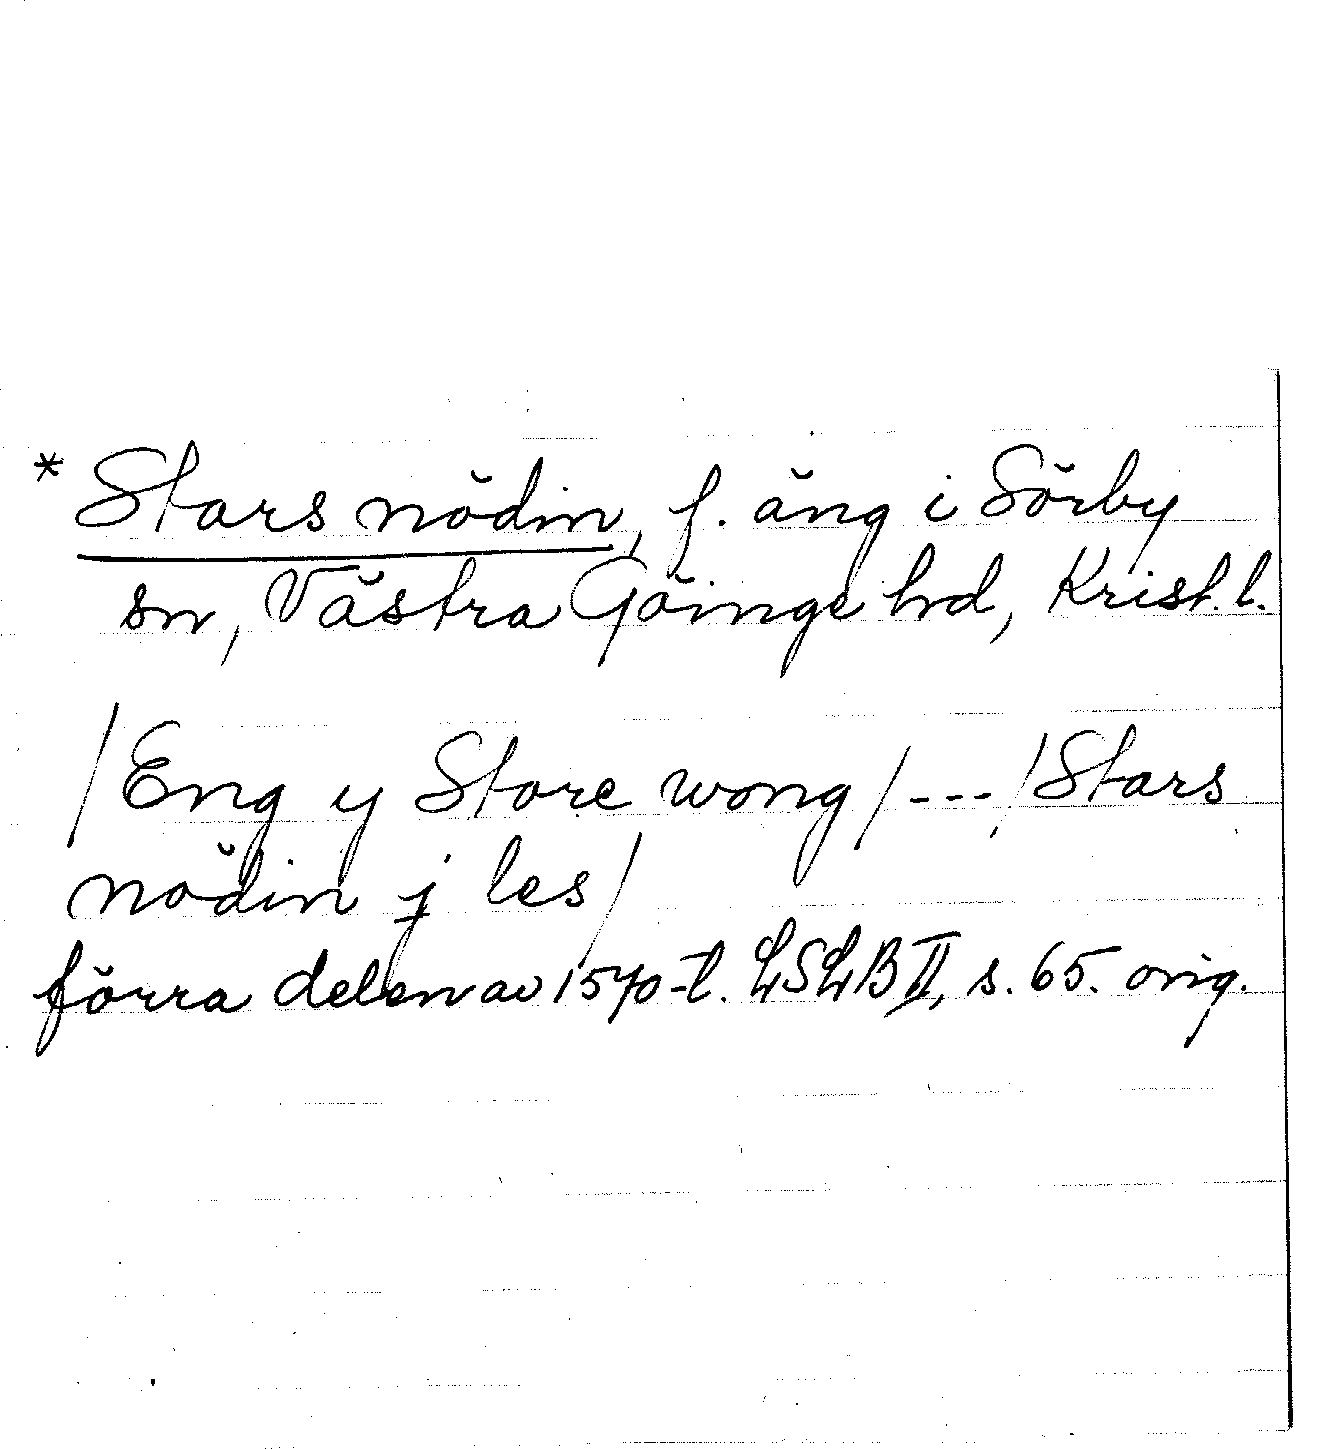 * Stars nödin, f. äng i Sörby
sn, Västra Göinge hd, Krist. l.
/Eng y Store wong/---/Stars
nödin j les/
förra delen av 1570-t. LSLB II, s. 65. orig.